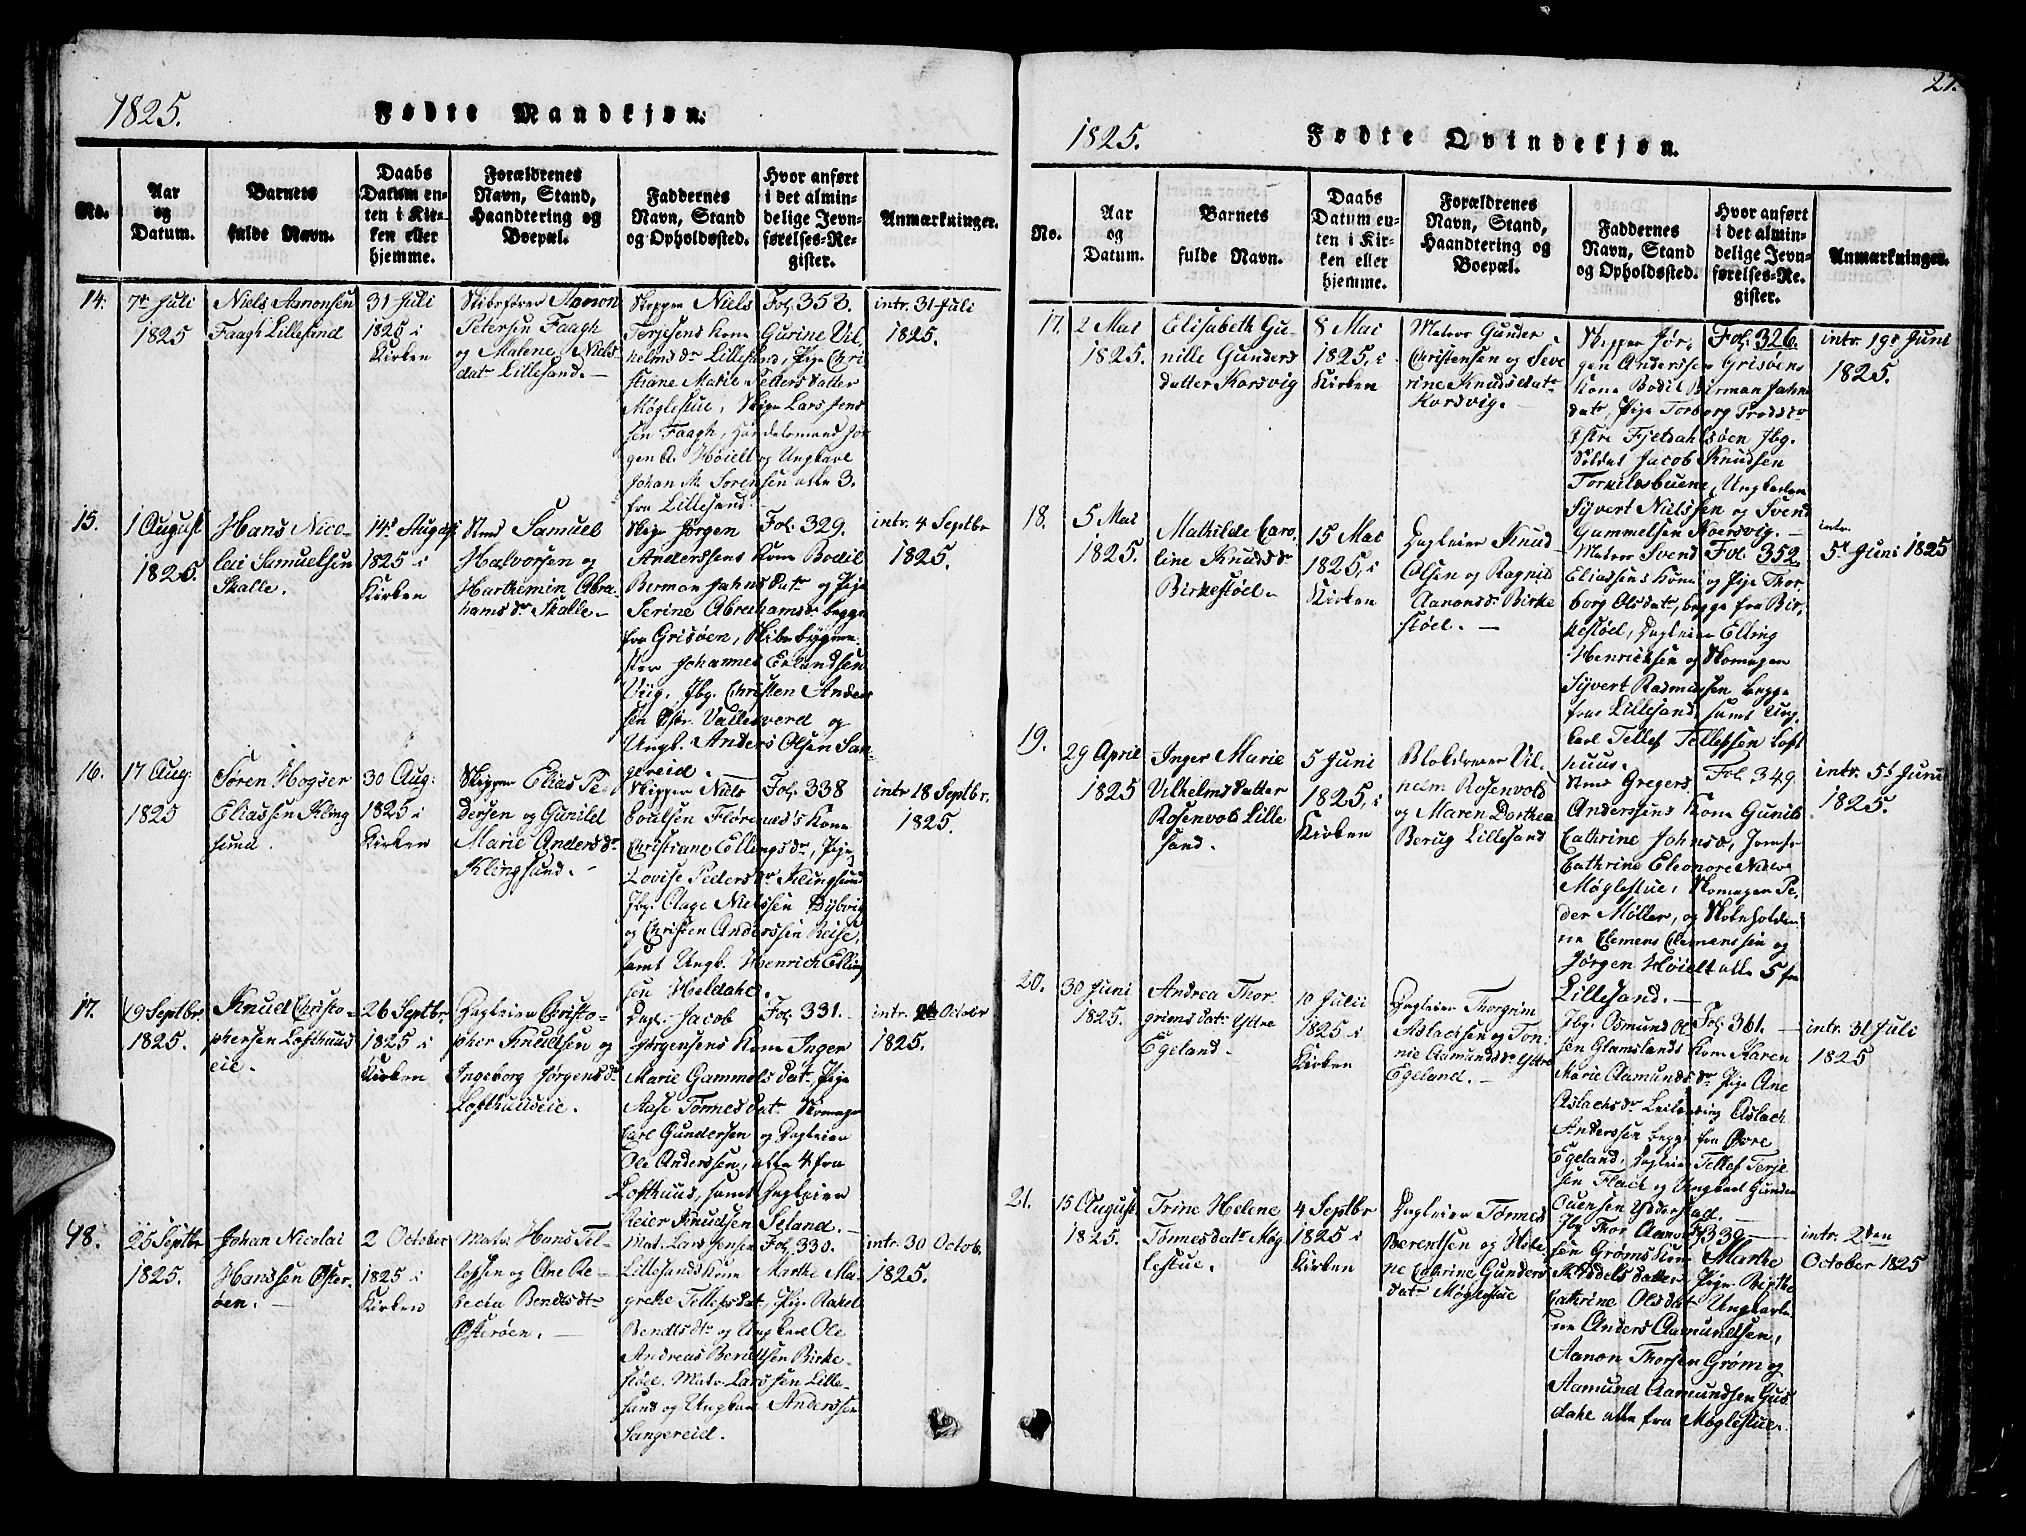 1825.
Fødte Mandkjøn.
No.
Aar
og
Datum.
Barnets
fulde Navn.
Daabs
Datum en-
ten i Kir-
ken eller
hjemme.
Forældrenes
Navn, Stand,
Haandtering og
Boepæl.
Faddernes
Navn, Stand
og Opholdssted.
Hvor anført
i det almin-
delige Jevn-
førelses-Re-
gister.
Anmærkninger.
14.
7de Juli
1825
Niels Aanonsen
Faagh Lillesand
31 Juli
1825 i
Kirken
Skibsfører Aanon
Petersen Faagh
og Malene Niels
datr Lillesand.
Skipper Niels
Terjesens Kone Gurine Vil
helmsdr Lillesand, Pige Chri
stiane Marie Pettersdatter
Møglestue, Skipr Lars Jens
sen Faagh, Handelsmand Jør
gen A. Høielt og Ungkarl
Johan M. Sørensen alle 3.
fra Lillesand.
Fol. 358.
intr. 31 Juli
1825.
15.
1 August
1825.
Hans Nico-
lai Samuelsen
Skalle.
14de August
1825 i
Kirken
Samuel
Halvorsen og
Harthemin Abra
hamsdr Skalle.
Skipr Jørgen
Anderssens Kone Bodil
Birman Jahnsdatr og Pige
Serine Abrahamsdr begge
fra Grisøen, Skibsbygme-
ster Johannes Erlandsen
Viig, Jbg. Christen Anders
sen Østr. Vallesverd og
Ungk. Anders Olsen San-
gereid.
Fol. 329.
intr. 4 Septbr
1825.
16.
17 Aug:
1825
Søren Hogser
Eliassen Kling
sund.
30 Aug:
1825 i
Kirken
Skipper Elias Pe
dersen og Gunild
Marie Andersdr
Klingsund.
Skipper Niels
Poulsen Flørenæs's Kone
Christiane Ellingsdr, Pige
Lovise Pedersdr Klingsund
Jbg. Aage Nielsen Dybvig
og Christen Anderssen Heise,
samt Ungk. Henrich Elling
sen Hæeldahl.
Fol. 338
intr 18 Septbr.
1825.
17.
19 Septbr.
1825.
Knud Christo-
phersen Lofthuus
eie.
26 Septbr.
1825 i
Kirken
Dagleier Christo-
pher Knudsen og
Ingeborg Jørgensdr
Lofthuuseie.
Dagl. Jacob
Jørgensens Kone Inger
Marie Gammelsdatr, Pige
Aase Tønnesdatr Skomager
Carl Gundersen og Dagleier
Ole Anderssen, alle 4 fra
Lofthuus, samt Dagleier
Reier Knudsen Seland.
Fol. 331.
intr. October
1825.
18.
25 Septbr
1825.
Johan Nicolai
Hanssen Øster-
øen.
2 October
1825 i
Kirken
Matr. Hans Tel-
lefsen og Ane Re-
becka Bendtsdtr
Østerøen.
Mat. Lars Jensen
Lillesands Kone Marthe Ma-
grethe Tellefsdat, Pige Rakel
Bendtsdtr og Ungkarl Ole
Andreas Bendtsen Birke-
støel, Matr. Lars Jensen Lille-
sand og Ungkarl Anderssen
Sangereid.
Fol. 330.
intr. 30 Octob.
1825.
27.
1825.
Fødte Qvindekjøn.
No.
Aar
og
Datum.
Barnets
fulde Navn.
Daabs
Datum en-
ten i Kir-
ken eller
hjemme.
Forældrenes
Navn, Stand,
Haandtering og
Boepæl.
Faddernes
Navn, Stand
og Opholdssted.
Hvor anført
i det almin-
delige Jevn-
førelses-Re-
gister.
Anmærkninger.
17.
2 Mai
1825.
Elisabeth Gu-
nille Gunders
datter Korsvig
8 Mai
1825, i
Kirken
Matros Gunder
Christensen og Seve
rine Knudsdatr
Korsvig.
Skipper Jør-
gen Anderssen Grisøens
Kone Bodil Birman Jahns
datr, Pige Torborg Trodsdr
Østre Fjeldahlsøen Jbg.
Soldat Jacob Knudsen
Torkildsbuene, Ungkarlen
Syvert Nielsen og Svend
Gammelsen Korsvig.
Fol. 326.
intr. 19de Juni
1825.
18.
5 Mai
1825.
Mathilde Caro
line Knudsdr
Birkestøel.
15 Mai
1825, i
Kirken
Dagleier Knud
Olsen og Ragnild
Aanonsdr Birke
støel.
Matros Svend
Eliassens Kone og Pige Thor
borg Olsdatr, begge fra Bir-
kestøel, Dagleier Elling
Henrichsen og Skomager
Syvert Rasmussen begge
fra Lillesand, samt Ung-
karl Tellef Tellefsen Loft
huus.
Fol. 352.
intr.
5te Juni 1825
19.
29 April
1825
Inger Marie
Vilhelmsdatter
Rosenvold Lille
sand.
5 Juni
1825, i
Kirken
Blokdreier Vil-
helm Rosenvold
og Maren Dorthea
Berug Lillesand
Gregers
Andersens Kone Gunild
Cathrine Johnsdr, Jomfr.
Cathrine Eleonore Nielsdr
Møglestue, Skomager Pe-
der Møller, og Skoleholder-
ne Clemens Clemenssen og
Jørgen Høielt alle 5 fra
Lillesand.
Fol. 349.
intr. 5te Juni
1825.
20.
30 Juni
1825.
Andrea Thor
grimsdatr Yttre
Egeland.
10 Julii
1825 i
Kirken
Dagleier Thorgrim
Aslachsen og Ton-
nie Aamundsdr Yttre
Egeland.
Jbg. Osmund Ol
sen Glamslands Kone Karen
Marie Aamundsdr Pige Ane
Aslachsdr Leilænding Aslach
Anderssen begge fra Øvre
Egeland, Dagleier Tellef Terje
sen Flach og Ungkarl Gunder
Ouensen Ydderstad.
Fol. 361.
intr. 31 Juli
1825
21.
15 August
1825.
Trine Helene
Tønnesdatr Møg
lestue.
4 Septbr
1825 i
Kirken
Dagleier Tønnes
Berentsen og Hele
ne Cathrine Gunders
datr Møglestue
Jbg Thor Aanon
sen Grøms Kone Marthe
Kiddelsdatter, Pige Birthe
Cathrine Olsdatr Ungkarle-
ne Anders Aamundsen,
Aanon Thorsen Grøm og
Aamund Aamundsen Gus
dahl alle fra Møglestue.
339.
intr. 2den
October 1825